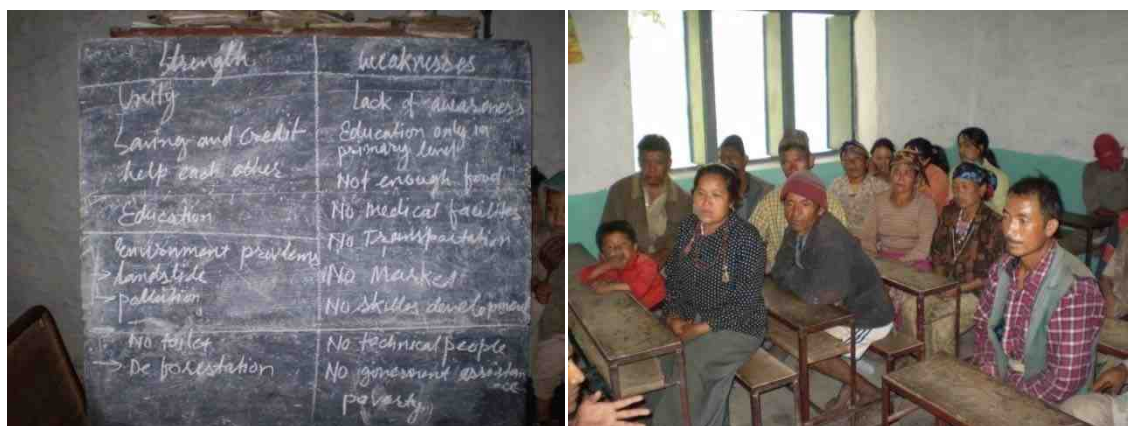 Strength
Unity
Saving and Credit
help each other
Education
Environment problems
→ landslide
→ pollution
No toilet
→ De forestation
Weaknesses
Lack of awareness
Education only in
primary level
Not enough food
No Medical facilites
No Transpartation
No Market
No skilles development
No technical people
No government assistan
ce
poverty